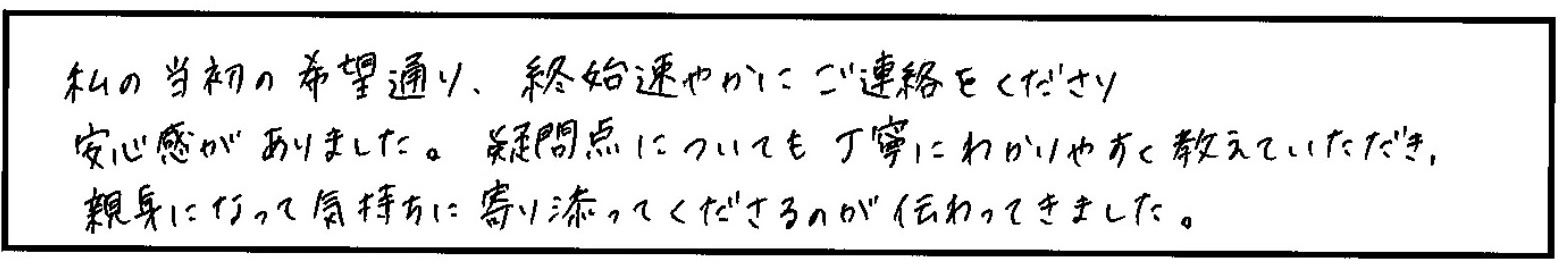 私の当初の希望通り、終始速やかにご連絡をくださり
安心感がありました。疑問点についても丁寧にわかりやすく教えていただき、
親身になって気持ちに寄り添ってくださるのが伝わってきました。